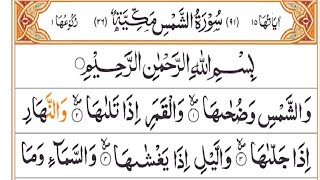 اٰیَاتُهَا ١٥ (٩١) سُوْرَةُ الشَّمْسِ مَكِّیَّةٌ (٢٦) رُكُوْعُهَا ١
بِسْمِ اللّٰهِ الرَّحْمٰنِ الرَّحِیْمِ
وَالشَّمْسِ وَضُحٰىهَا ۪ۙ‏١ وَالْقَمَرِ اِذَا تَلٰىهَا ۪ۙ‏٢ وَالنَّهَارِ
اِذَا جَلّٰىهَا ۪ۙ‏٣ وَالَّیْلِ اِذَا یَغْشٰىهَا ۪ۙ‏٤ وَالسَّمَآءِ وَمَا